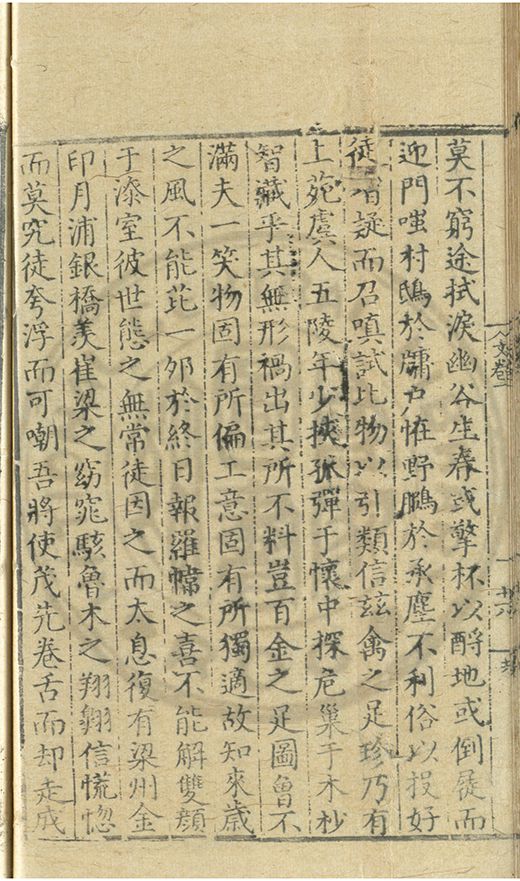 莫不窮途拭淚幽谷生春或擎杯以酹地或倒屣而
迎門嗤村鴟於牖户恠野鵬於承塵不利俗以投好
徒増疑而召嗔試比物以引類信茲禽之足珍乃有
上苑虞人五陵年少挾孤彈于懷中探危巢于木杪
智藏乎其無形禍出其所不料豈百金之足圖曾不
滿夫一笑物固有所偏工意固有所獨適故知來歲
之風不能芘一夘於終日報羅幃之喜不能解雙顔
于漆室彼世態之無常徒因之而太息復有梁州金
印月浦銀橋羨崔梁之窈窕駭魯木之翔翺信慌惚
而莫究徒夸浮而可嘲吾將使茂先卷舌而却走成
文卷
廿六